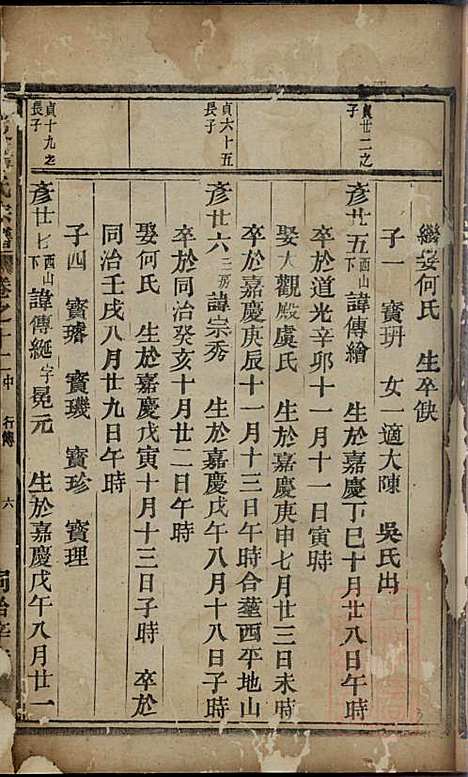 繼娶何氏 生卒缺
子一 寳玬 女一適大陳 吳氏出
貞廿二之子
彥廿五西山下諱傳繪 生於嘉慶丁巳十月廿八日午時
卒於道光辛卯十一月十一日寅時
娶大觀殿虞氏 生於嘉慶庚申七月廿三日未時
卒於嘉慶庚辰十一月十三日午時合塟西平地山
貞六十五長子
彥廿六三房諱宗秀 生於嘉慶戊午八月十八日午時
卒於同治癸亥十月廿二日午時
娶何氏 生於嘉慶戊寅十月十三日子時 卒於
同治壬戌八月廿九日午時
子四 寳璿 寳璣 寳珍 寳理
貞十九之長子
彥廿七西山下諱傳綖字冕元 生於嘉慶戊午八月廿一
氏宗譜 卷之十二中 行傳 六 同治辛